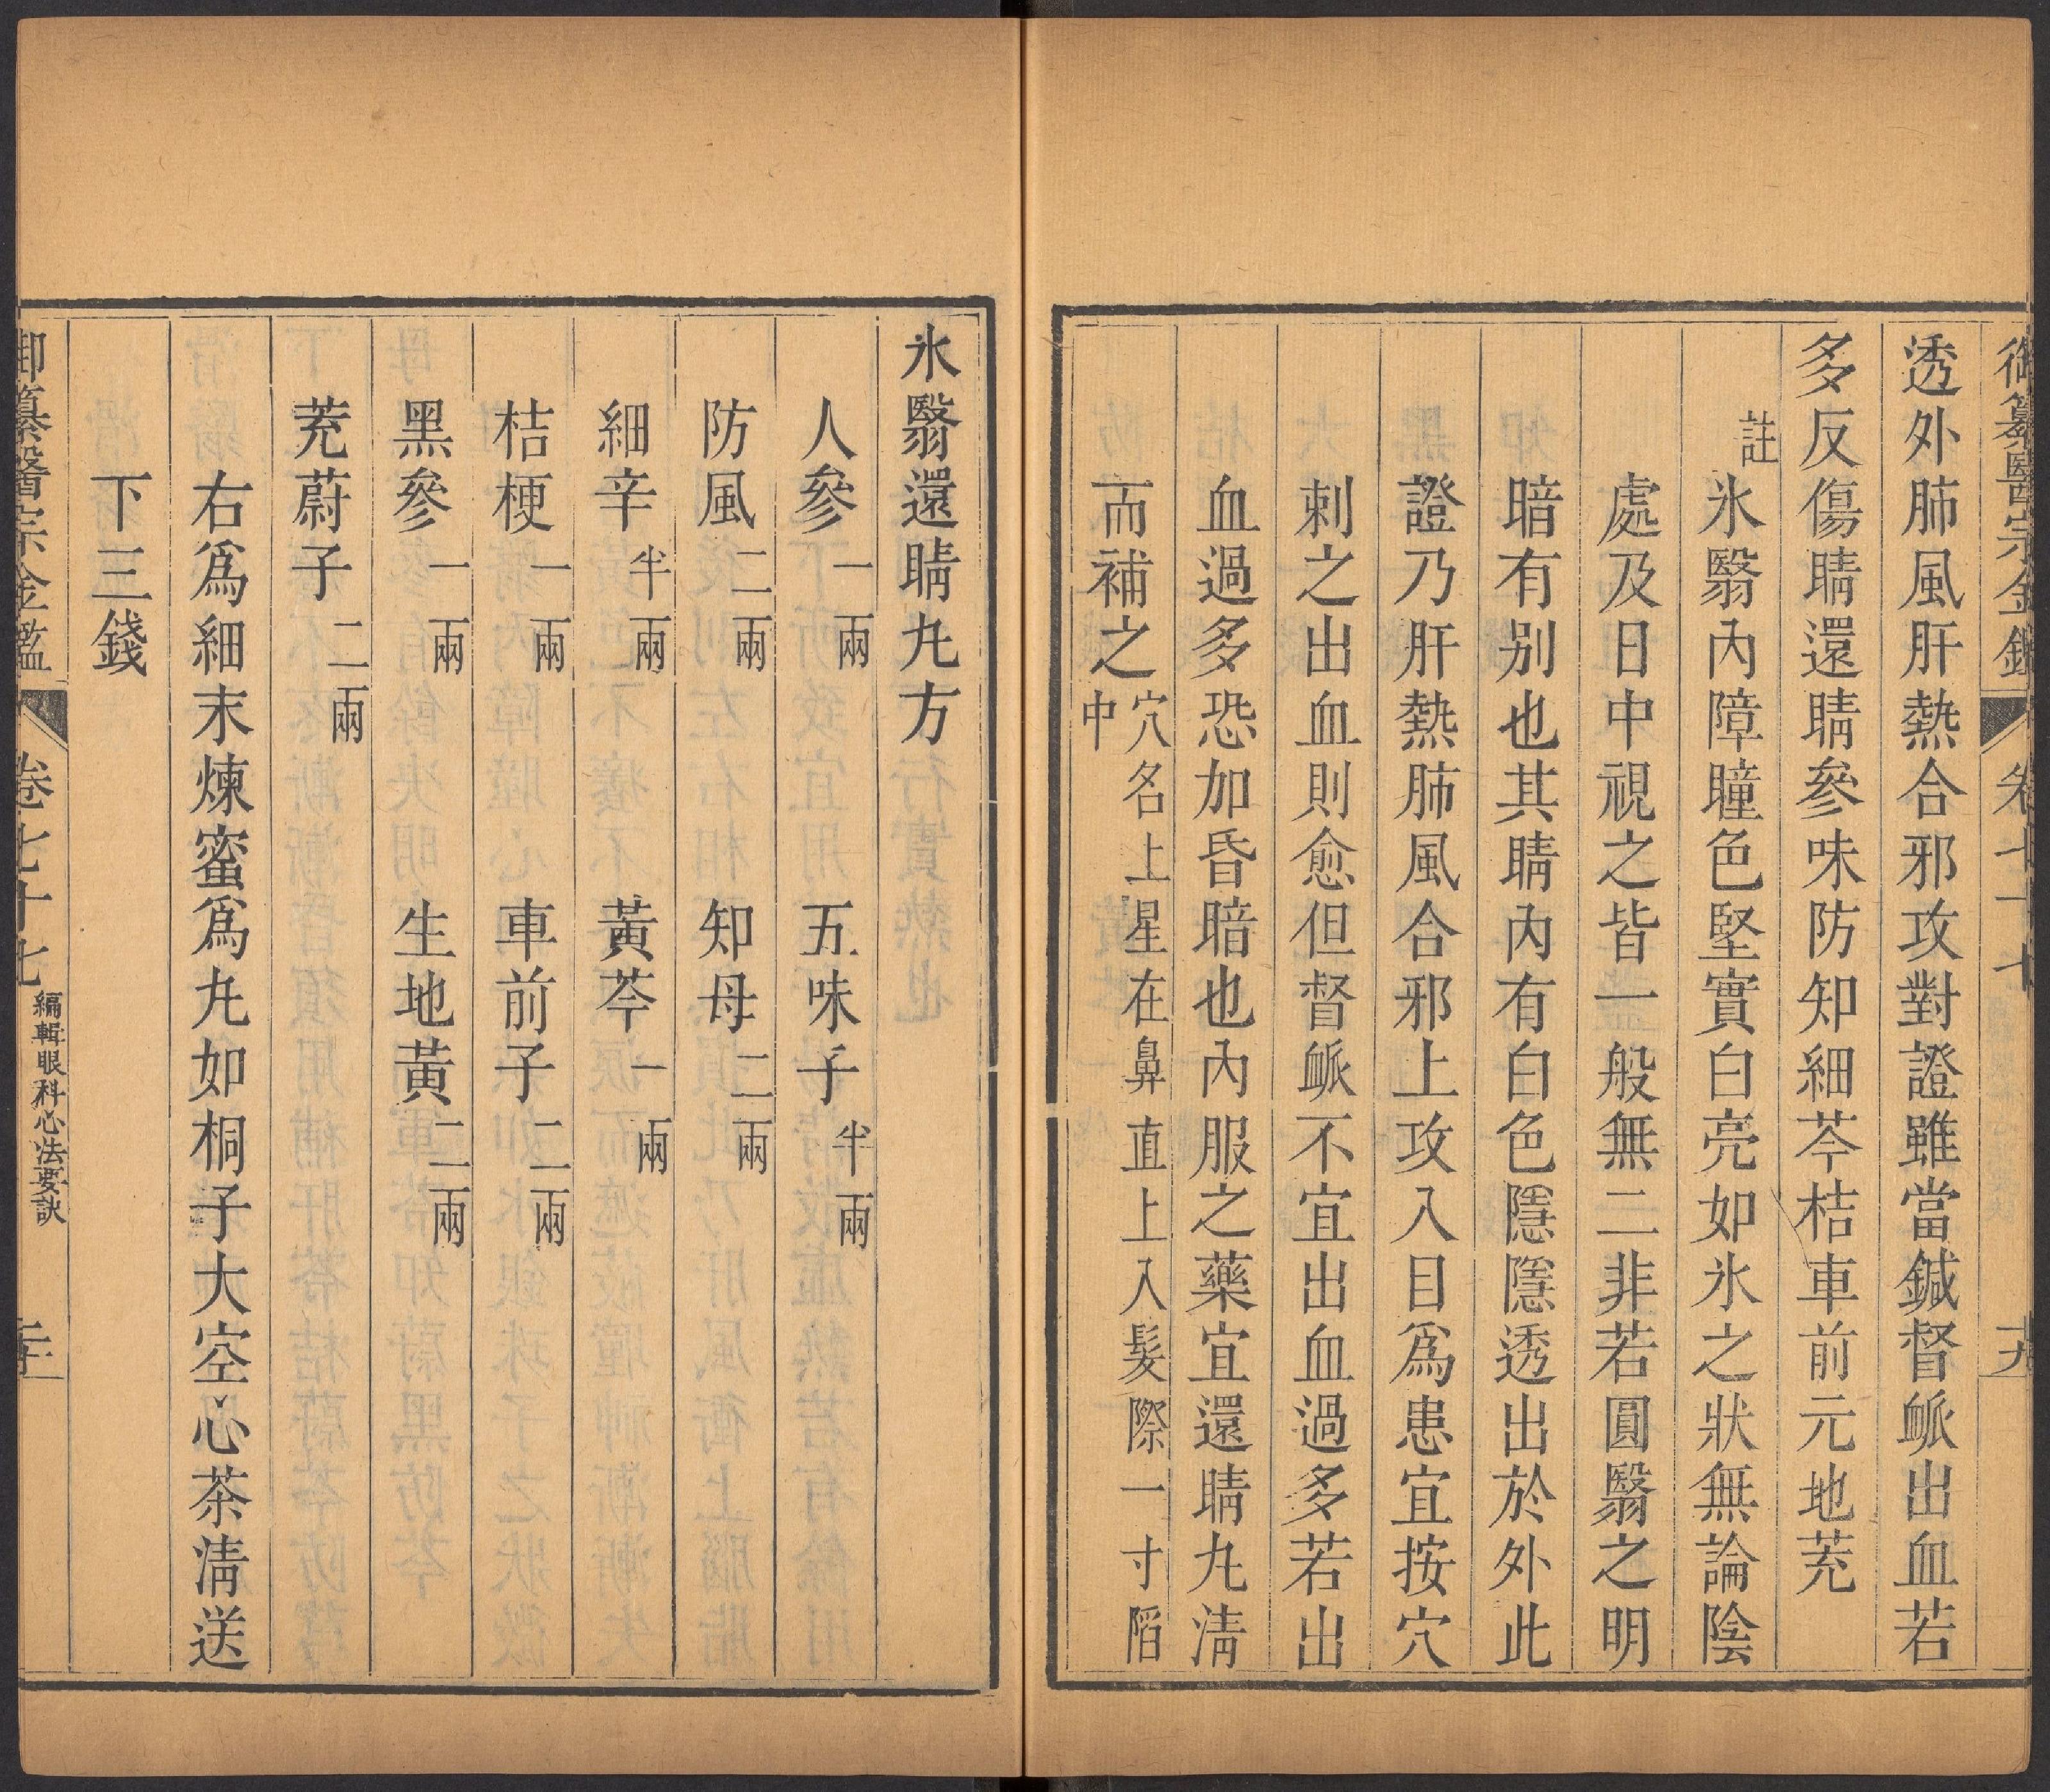 御纂醫宗金鑑 卷七十七 十九
透外肺風肝熱合邪攻對證雖當鍼督䘑出血若
多反傷睛還睛參味防知細芩桔車前元地茺
註氷翳內障瞳色堅實白亮如氷之狀無論陰
處及日中視之皆一般無二非若圓翳之明
暗有别也其睛內有白色隱隱透出於外此
證乃肝熱肺風合邪上攻入目爲患宜按穴
刺之出血則愈但督䘑不宜出血過多若出
血過多恐加昏暗也內服之藥宜還睛丸淸
而補之穴名上星在鼻直上入髮際一寸陷
中
氷翳還睛丸方
人參一兩 五味子半兩
防風二兩 知母二兩
細辛半兩 黃芩一兩
桔梗一兩 車前子二兩
黑參一兩 生地黃二兩
茺蔚子二兩
右爲細末煉蜜爲丸如桐子大空心茶淸送
下三錢
御纂醫宗金鑑 卷七十七 編輯眼科心法要訣 二十